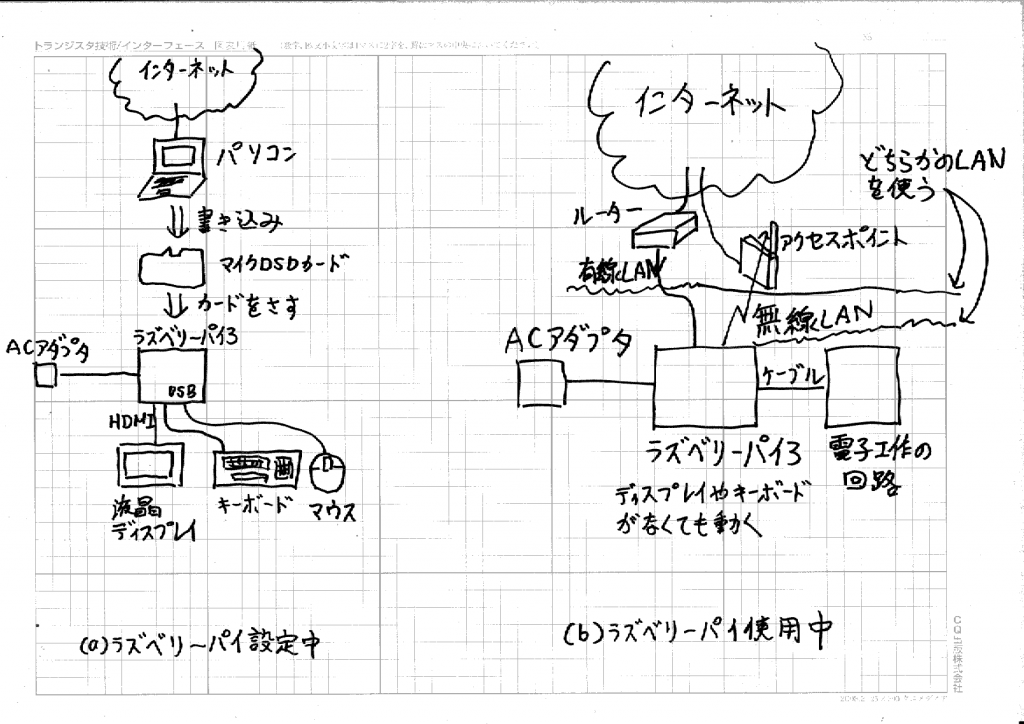 トランジスタ技術/インターフェース
インターネット
パソコン
書き込み
マイクロSDカード
カードをさす
ラズベリーパイ3
ACアダプタ
USB
HDMI
液晶
ディスプレイ
キーボード
マウス
(a)ラズベリーパイ設定中
インターネット
どちらかのLAN
を使う
ルーター
アクセスポイント
有線LAN
無線LAN
ACアダプタ
ケーブル
ラズベリーパイ3
電子工作の
回路
ディスプレイやキーボード
がなくても動く
(b)ラズベリーパイ使用中
CQ出版株式会社